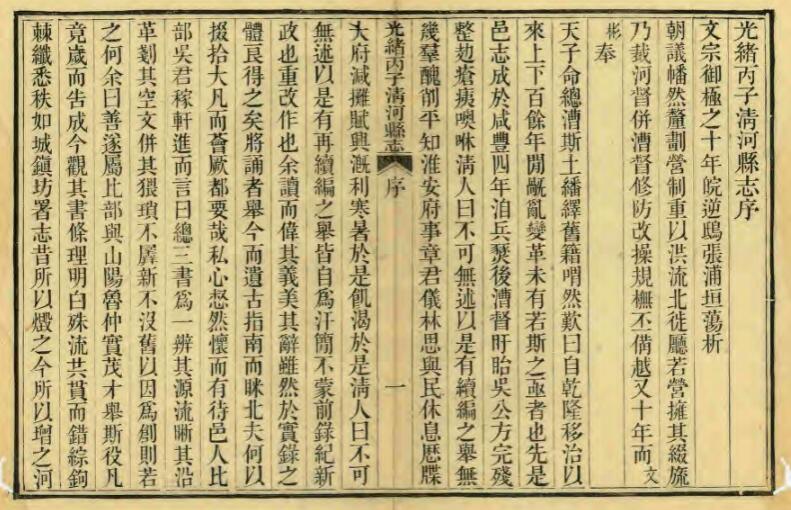 光緒丙子清河縣志序
文宗御極之十年皖逆鴟張浦垣蕩析
朝議幡然釐劃營制重以洪流北徙廳若營擁其綴旒
乃裁河督併漕督修防改操規橅丕備越又十年而文
彬奉
天子命總漕斯土繙繹舊籍喟然歎曰自乾隆移治以
來上下百餘年閒亂變革未有若斯之亟者也先是
邑志成於咸豐四年洎兵燹後漕督盱眙吳公方完殘
整刱瘡痍噢咻清人曰不可無述以是有續編之舉無
幾羣醜削平知淮安府事章君儀林思與民休息歷牒
光緒丙子清河縣志 序 一
大府減攤賦興漑利寒暑於是飢渴於是清人曰不可
無述以是有再續編之舉皆自爲汗簡不蒙前錄紀新
政也重改作也余讀而偉其義美其辭雖然於實錄之
體良得之矣將誦者舉今而遺古指南而眯北夫何以
掇拾大凡而薈厥都要哉私心惄然懷而有待邑人比
部吳君稼軒進而言曰總三書爲一辨其源流晰其沿
革剗其空文併其猥瑣不羼新不沒舊以因爲創則若
之何余曰善遂屬比部與山陽魯仲實茂才舉斯役凡
竟歲而告成今觀其書條理明白殊流共貫而錯綜鉤
棘纖悉秩如城鎭坊署志昔所以燬之今所以增之河